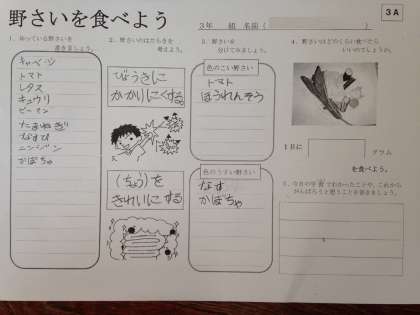 野さいを食べよう
3A
3年 組 名前( )
1. 知っている野さいを
書きましょう。
キャベツ
トマト
レタス
キュウリ
ピーマン
たまねぎ
なすび
ニンジン
かぼちゃ
2. 野さいのはたらきを
考えよう。
びょうきに
かかりにくする。
(ちょう)を
きれいにする
3. 野さいを
分けてみましょう。
色のこい野さい
トマト
ほうれんそう
色のうすい野さい
なす
かぼちゃ
4. 野さいはどのくらい食べたら
いいのでしょうか。
1日に グラム
を食べよう。
5. 今日の学習でわかったことや、これから
がんばろうと思うことを書きましょう。